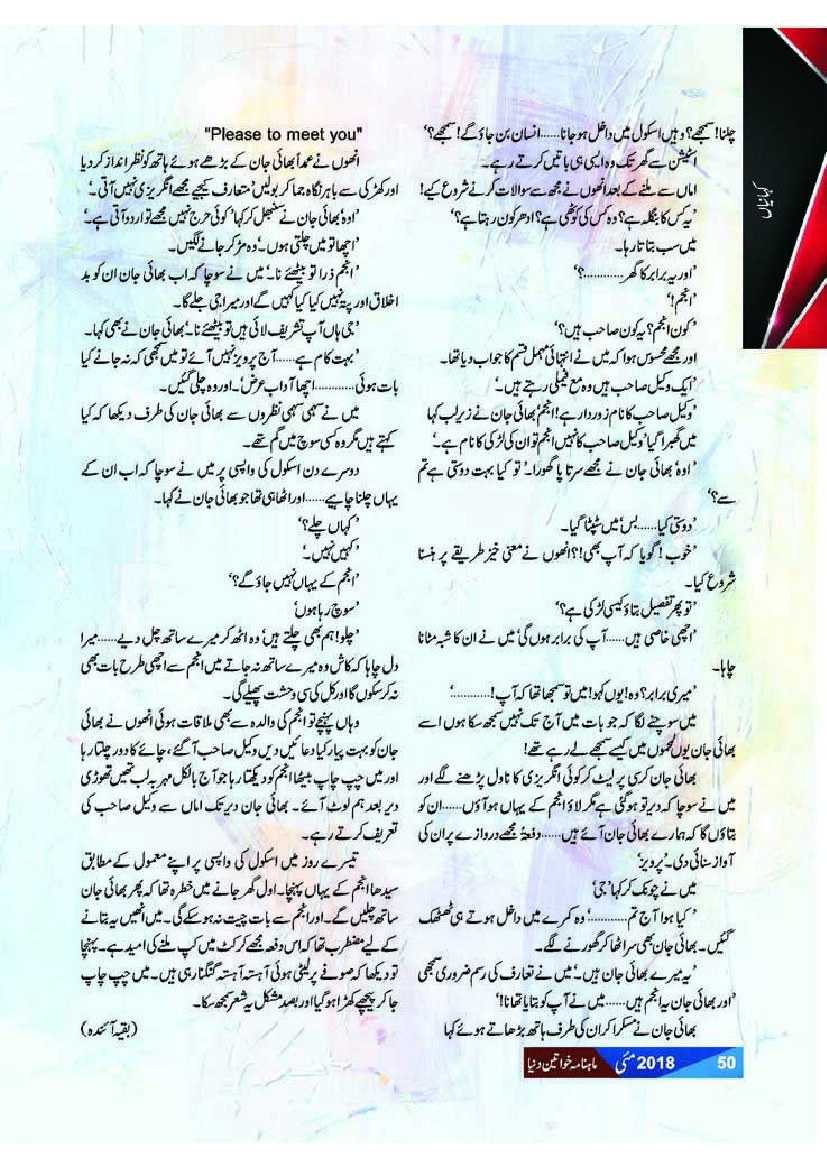 کہانیاں
چلنا! سمجھے؟ وہیں اسکول میں داخل ہو جانا......انسان بن جاؤ گے! سمجھے؟‘
اسٹیشن سے گھر تک وہ ایسی ہی باتیں کرتے رہے۔
اماں سے ملنے کے بعد انھوں نے مجھ سے سوالات کرنے شروع کیے!
’یہ کس کا بنگلہ ہے؟ وہ کس کی کوٹھی ہے؟ ادھر کون رہتا ہے؟‘
میں سب بتاتا رہا۔
’اور یہ برابر کا گھر............؟‘
’انجم!‘
’کون انجم؟ یہ کون صاحب ہیں؟‘
اور مجھے محسوس ہوا کہ میں نے انتہائی مہمل قسم کا جواب دیا تھا۔
’ایک وکیل صاحب ہیں وہ مع فیملی رہتے ہیں۔‘
’وکیل صاحب کا نام زوردار ہے! انجم‘ بھائی جان نے زیر لب کہا
میں گھبرا گیا’ وکیل صاحب کا نہیں انجم تو ان کی لڑکی کا نام ہے۔‘
’اوہ‘ بھائی جان نے مجھے سر تا پا گھورا۔’ تو کیا بہت دوستی ہے تم
سے؟‘
’دوستی کیا......بس‘ میں سٹپٹا گیا۔
’خوب! گویا کہ آپ بھی!؟‘ انھوں نے معنی خیز طریقے پر ہنسنا
شروع کیا۔
’تو پھر تفصیل بتاؤ کیسی لڑکی ہے؟‘
’اچھی خاصی ہیں......آپ کی برابر ہوں گی‘ میں نے ان کا شبہ مٹانا
چاہا۔
’میری برابر؟ وہ! یوں کہو! میں تو سمجھا تھا کہ آپ!............‘
میں سوچنے لگا کہ جو بات میں آج تک نہیں سمجھ سکا ہوں اسے
بھائی جان یوں لمحوں میں کیسے سمجھے لے رہے تھے!
بھائی جان کرسی پر لیٹ کر کوئی انگریزی کا ناول پڑھنے لگے اور
میں نے سوچا کہ دیر تو ہو گئی ہے مگر لاؤ انجم کے یہاں ہو آؤں......ان کو
بتاؤں گا کہ ہمارے بھائی جان آئے ہیں......دفعۃً مجھے دروازے پر ان کی
آواز سنائی دی۔’ پرویز‘
میں نے چونک کر کہا’ جی‘
’کیا ہوا آج تم............‘ وہ کمرے میں داخل ہوتے ہی ٹھٹھک
گئیں۔ بھائی جان بھی سر اٹھا کر گھورنے لگے۔
’یہ میرے بھائی جان ہیں۔‘ میں نے تعارف کی رسم ضروری سمجھی
’اور بھائی جان یہ انجم ہیں......میں نے آپ کو بتایا تھا نا!‘
بھائی جان نے مسکرا کر ان کی طرف ہاتھ بڑھاتے ہوئے کہا
"Please to meet you"
انھوں نے عمداً بھائی جان کے بڑھے ہوئے ہاتھ کو نظر انداز کر دیا
اور کھڑکی سے باہر نگاہ جما کر بولیں’ متعارف کیجیے مجھے انگریزی نہیں آتی۔‘
’اوہ‘ بھائی جان نے سنبھل کر کہا’ کوئی حرج نہیں مجھے تو اردو آتی ہے۔‘
’اچھا تو میں چلتی ہوں۔‘ وہ مڑ کر جانے لگیں۔
’انجم ذرا تو بیٹھئے نا۔‘ میں نے سوچا کہ اب بھائی جان ان کو بد
اخلاق اور پتہ نہیں کیا کیا کہیں گے اور میرا جی جلے گا۔
’جی ہاں آپ تشریف لائی ہیں تو بیٹھئے نا۔‘ بھائی جان نے بھی کہا۔
’بہت کام ہے......آج پرویز نہیں آئے تو میں سمجھی کہ نہ جانے کیا
بات ہوئی............اچھا آداب عرض‘۔ اور وہ چلی گئیں۔
میں نے سہمی سہمی نظروں سے بھائی جان کی طرف دیکھا کہ کیا
کہتے ہیں مگر وہ کسی سوچ میں گم تھے۔
دوسرے دن اسکول کی واپسی پر میں نے سوچا کہ اب ان کے
یہاں چلنا چاہیے......اور اٹھا ہی تھا جو بھائی جان نے کہا۔
’کہاں چلے؟‘
’کہیں نہیں۔‘
’انجم کے یہاں نہیں جاؤ گے؟‘
’سوچ رہا ہوں‘
’چلو! ہم بھی چلتے ہیں‘ وہ اٹھ کر میرے ساتھ چل دیے......میرا
دل چاہا کہ کاش وہ میرے ساتھ نہ جاتے میں انجم سے اچھی طرح بات بھی
نہ کر سکوں گا اور کل کی سی وحشت پھیلے گی۔
وہاں پہنچے تو انجم کی والدہ سے بھی ملاقات ہوئی انھوں نے بھائی
جان کو بہت پیار کیا دعائیں دیں وکیل صاحب آ گئے، چائے کا دور چلتا رہا
اور میں چپ چاپ بیٹھا انجم کو دیکھتا رہا جو آج بالکل مہر بہ لب تھیں تھوڑی
دیر بعد ہم لوٹ آئے۔ بھائی جان دیر تک اماں سے وکیل صاحب کی
تعریف کرتے رہے۔
تیسرے روز میں اسکول کی واپسی پر اپنے معمول کے مطابق
سیدھا انجم کے یہاں پہنچا۔ اول گھر جانے میں خطرہ تھا کہ پھر بھائی جان
ساتھ چلیں گے۔ اور انجم سے بات چیت نہ ہو سکے گی۔ میں انھیں یہ بتانے
کے لیے مضطرب تھا کہ اس دفعہ مجھے کرکٹ میں کپ ملنے کی امید ہے۔ پہنچا
تو دیکھا کہ صوفے پر لیٹی ہوئی آہستہ آہستہ گنگنا رہی ہیں۔ میں چپ چاپ
جا کر پیچھے کھڑا ہو گیا اور بصد مشکل یہ شعر سمجھ سکا۔
(بقیہ آئندہ)
ماہنامہ خواتین دنیا مئی 2018 50